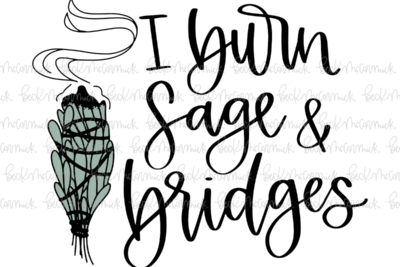 I burn
Sage &
bridges